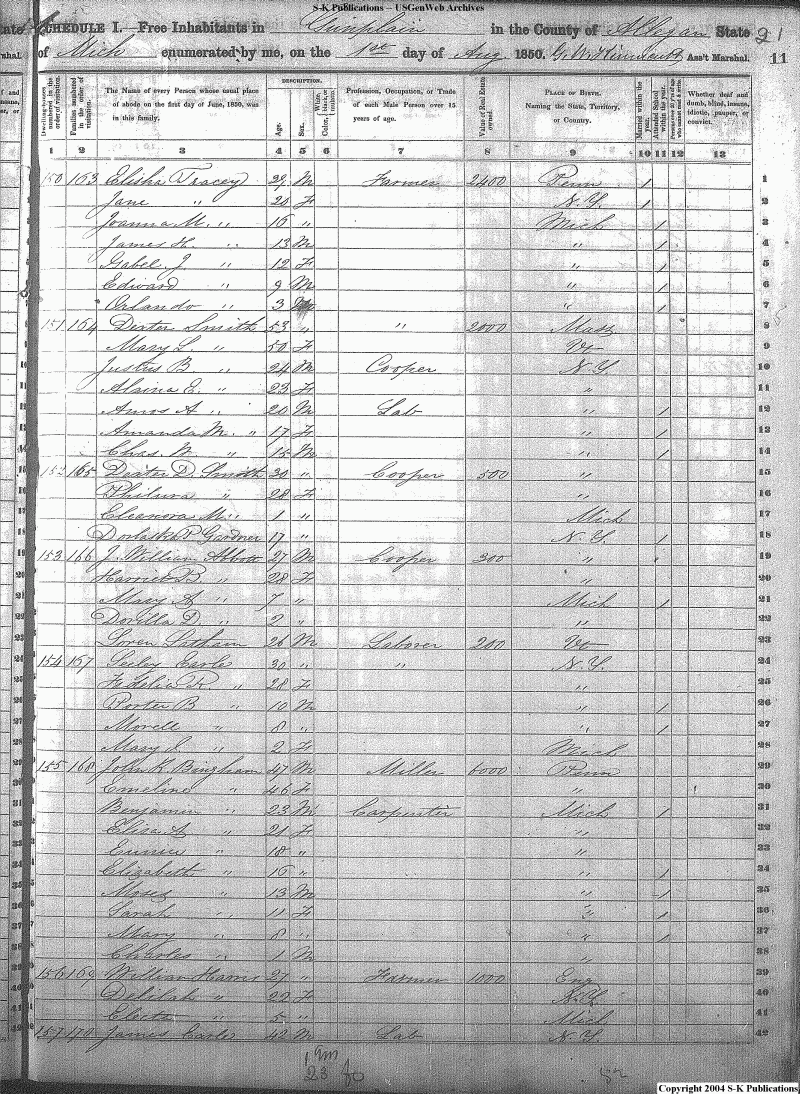 S-K Publications – USGenWeb Archives
SCHEDULE I.—Free Inhabitants in Gunplain in the County of Allegan State 21
of Mich enumerated by me, on the 1st day of Aug 1850. Ass't Marshal. 11
Dwelling-houses numbered in the order of visitation. Families numbered in the order of visitation. The Name of every Person whose usual place of abode on the first day of June, 1850, was in this family. DESCRIPTION. Age. Sex. Color, White, black, or mulatto. Profession, Occupation, or Trade of each Male Person over 15 years of age. Value of Real Estate owned. PLACE OF BIRTH. Naming the State, Territory, or Country. Married within the year. Attended School within the year. Persons over 20 y'rs of age who cannot read & write. Whether deaf and dumb, blind, insane, idiotic, pauper, or convict.
1 2 3 4 5 6 7 8 9 10 11 12 13
150 163 Elisha Tracey 29 M Farmer 2400 Penn 1 1
Jane " 20 F N.Y. 1 2
Joanna M. " 16 " Mich 1 3
James H. " 13 M " 1 4
Gabel J. " 12 F " 1 5
Edward " 9 M " 1 6
Orlando " 3 M " 1 7
151 164 Dexter Smith 53 " " 2000 Mass 8
Mary L. " 50 F Vt 9
Justus B. " 24 M Cooper N.Y. 10
Alzina E. " 23 F " 11
Amos A. " 20 M Lab " 1 12
Amanda M. " 17 F " 1 13
Chas. W. " 15 M " 1 14
152 165 Dexter D. Smith 30 " Cooper 500 " 15
Philura " 28 F " 16
Eleanora M. " 1 " Mich 17
P Gardner 17 " N.Y. 1 18
153 166 J. William Abbott 27 M Cooper 300 " 19
Harriet B " 28 F " 20
Mary A " 7 " Mich 1 21
Dorilla D. " 2 " " 22
Loren Latham 26 M Laborer 200 Vt 23
154 167 Seeley Earle 30 " " N.Y. 24
R. " 28 F " 25
Porter B " 10 M " 1 26
Morell " 8 " " 1 27
Mary J. " 2 F Mich 28
155 168 John K Bingham 47 M Miller 6000 Penn 29
Emeline " 46 F " 30
Benjamin " 23 M Carpenter Mich 1 31
Eliza A " 21 F " 32
" 18 " " 33
Elizabeth " 16 " " 1 34
Moses " 13 M " 1 35
Sarah " 11 F " 1 36
Mary " 8 " " 1 37
Charles " 1 M " 38
156 169 William Harris 27 " Farmer 1000 Eng 39
Delilah " 22 F N.Y. 40
Electa " 5 " Mich 41
157 170 James Earle 42 M Lab N.Y. 42
Copyright 2004 S-K Publications